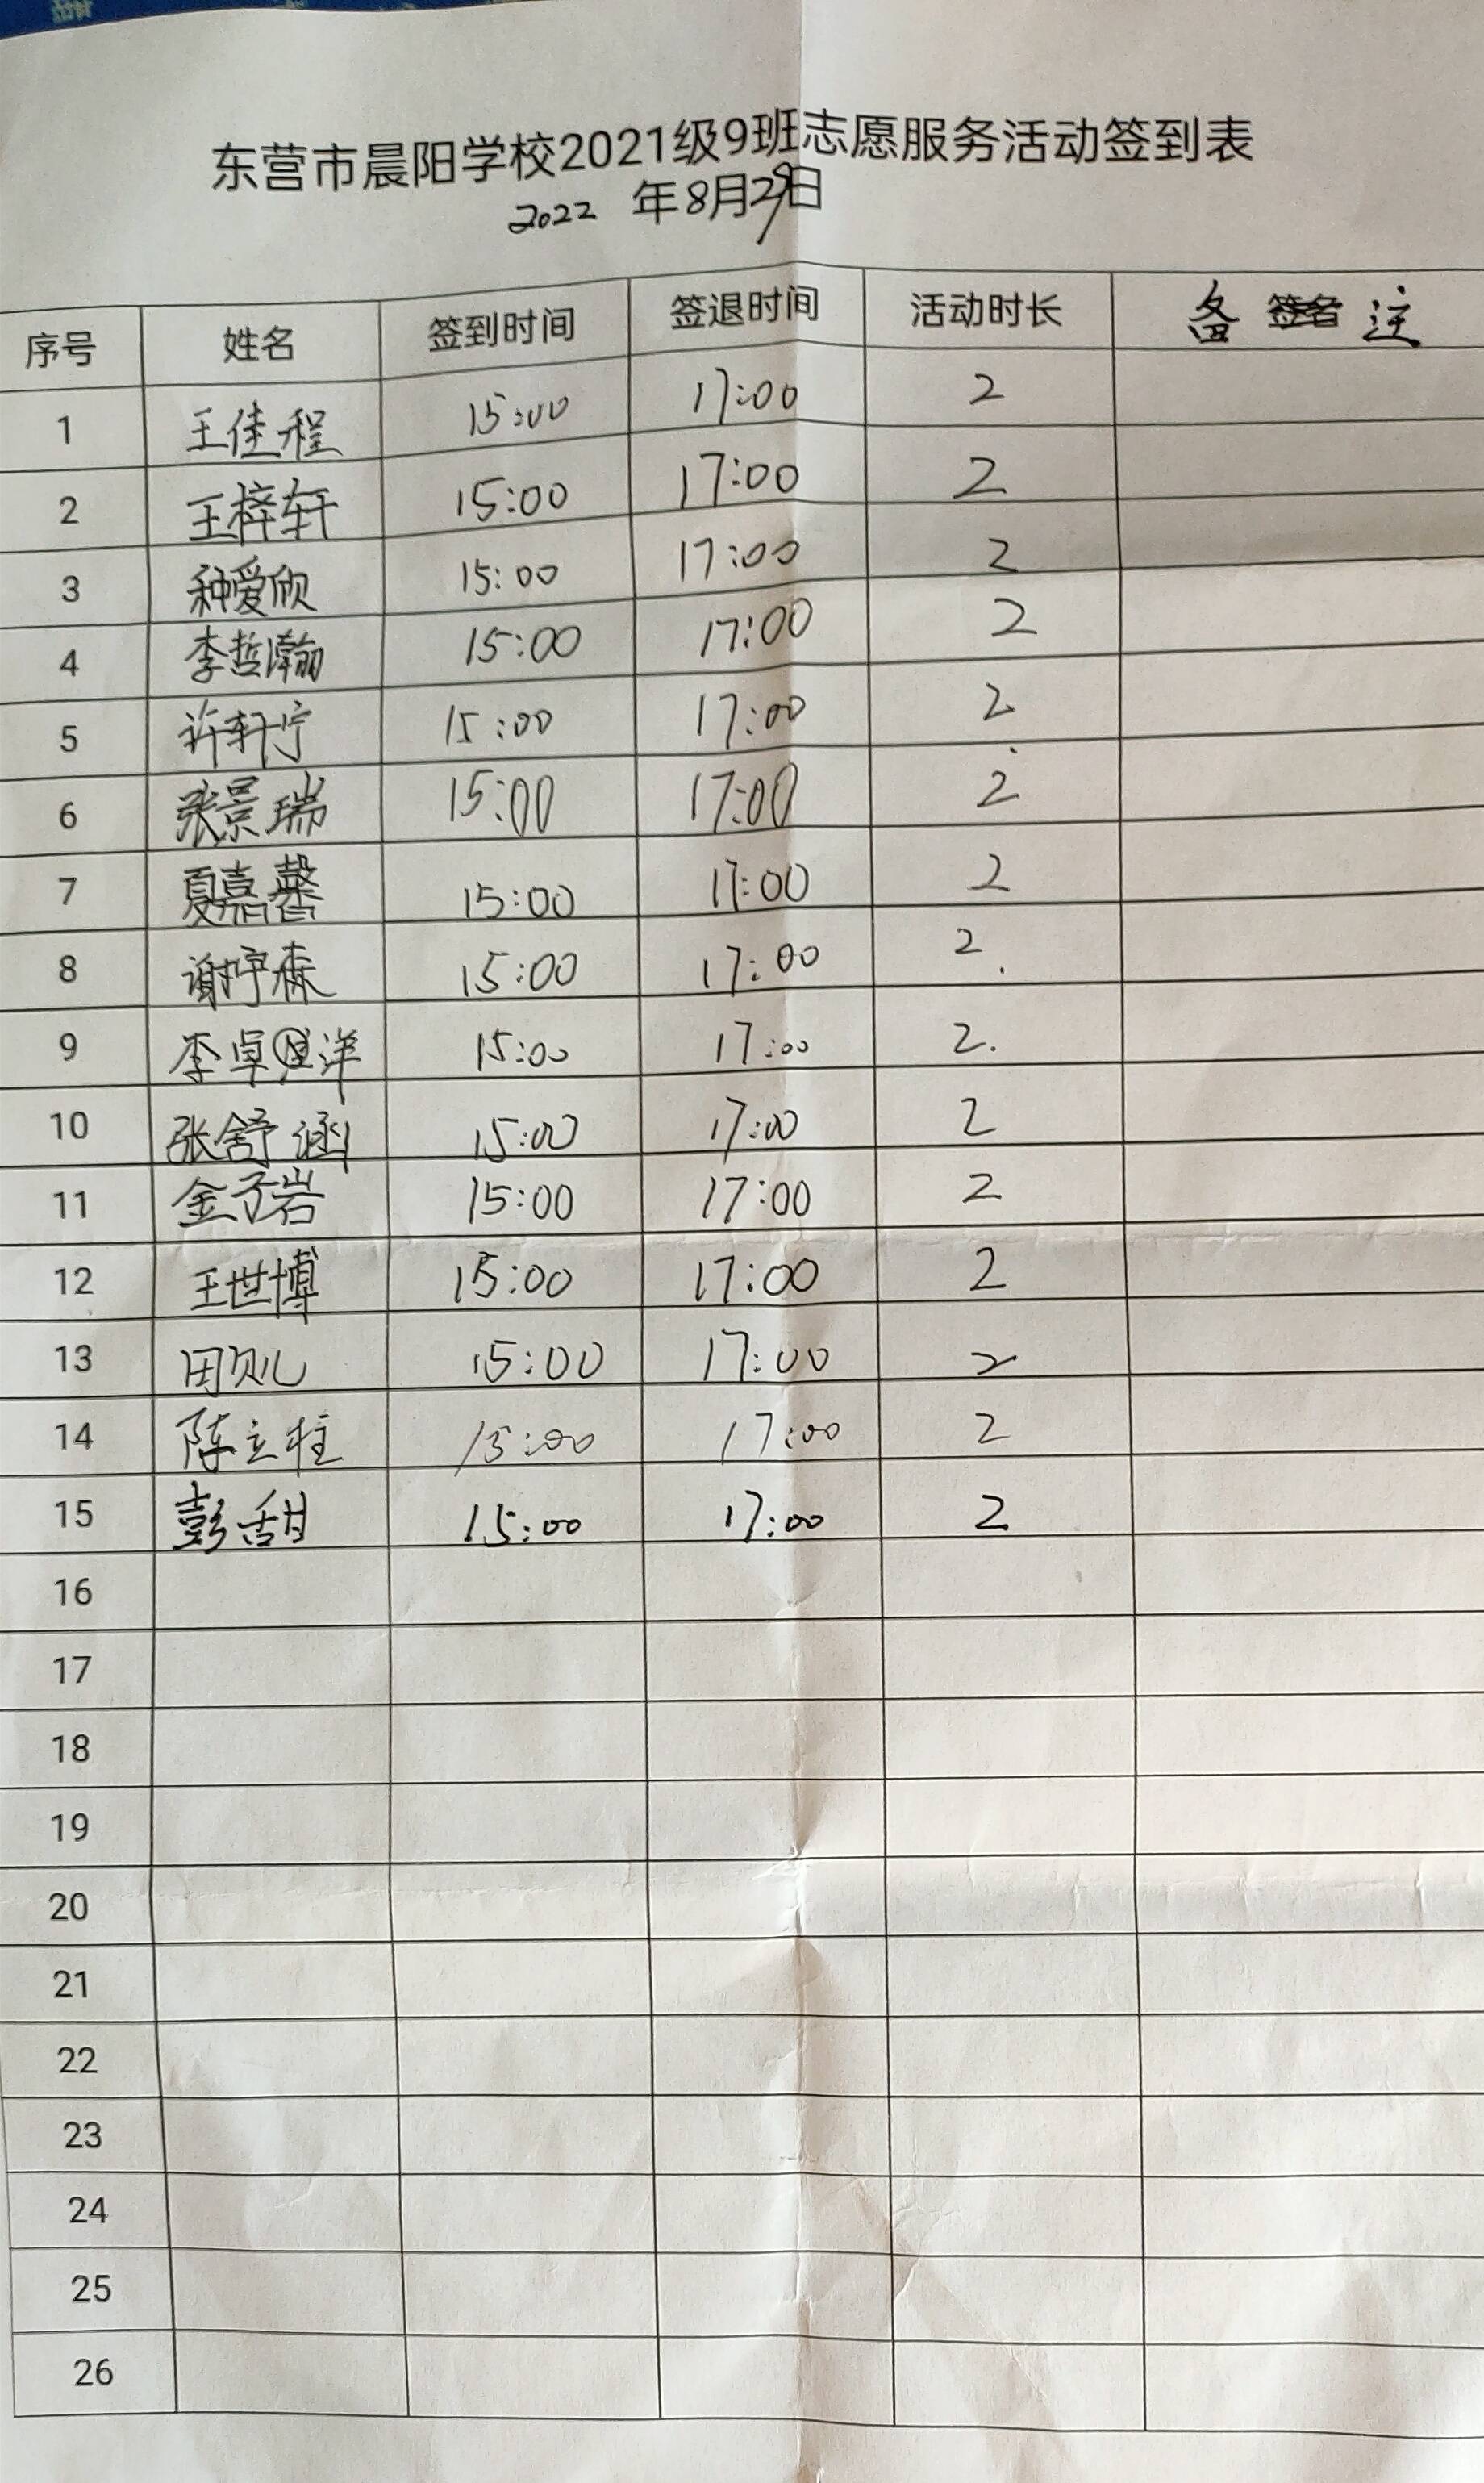 东营市晨阳学校2021级9班志愿服务活动签到表
2022 年8月29日
序号 姓名 签到时间 签退时间 活动时长 备 注
1 王佳程 15:00 17:00 2
2 王梓轩 15:00 17:00 2
3 种爱欣 15:00 17:00 2
4 李哲瀚 15:00 17:00 2
5 许轩宁 15:00 17:00 2
6 张景瑞 15:00 17:00 2
7 夏嘉馨 15:00 17:00 2
8 15:00 17:00 2
9 李卓洋 15:00 17:00 2.
10 张舒涵 15:00 17:00 2
11 金子岩 15:00 17:00 2
12 王世博 15:00 17:00 2
13 田则儿 15:00 17:00 2
14 陈立柱 15:00 17:00 2
15 彭甜 15:00 17:00 2
16
17
18
19
20
21
22
23
24
25
26